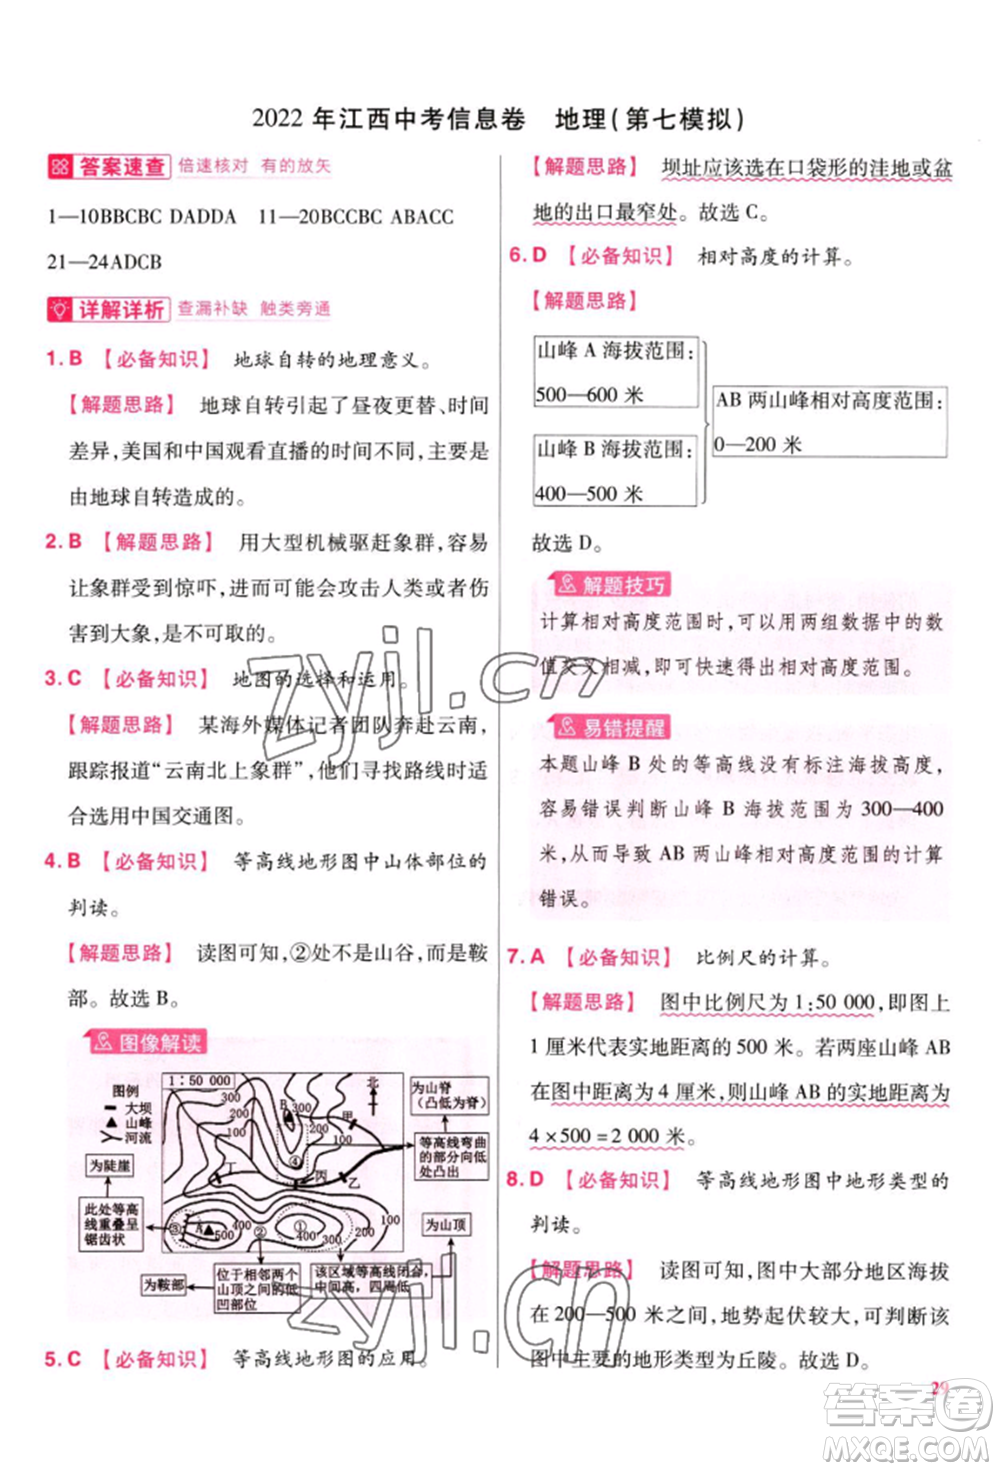 2022 年江西中考信息卷　地理(第七模拟)
答案速查 倍速核对 有的放矢
1—10BBCBC DADDA　11—20BCCBC ABACC
21—24ADCB
详解详析 查漏补缺 触类旁通
1. B 【必备知识】 地球自转的地理意义。
【解题思路】 地球自转引起了昼夜更替、时间
差异,美国和中国观看直播的时间不同,主要是
由地球自转造成的。
2. B 【解题思路】 用大型机械驱赶象群,容易
让象群受到惊吓,进而可能会攻击人类或者伤
害到大象,是不可取的。
3. C 【必备知识】 地图的选择和运用。
【解题思路】 某海外媒体记者团队奔赴云南,
跟踪报道“云南北上象群”,他们寻找路线时适
合选用中国交通图。
4. B 【必备知识】 等高线地形图中山体部位的
判读。
【解题思路】 读图可知,②处不是山谷,而是鞍
部。故选 B。
图像解读
图例
大坝
山峰
河流
1∶50 000
北
为山脊
(凸低为脊)
等高线弯曲
的部分向低
处凸出
为陡崖
此处等高
线重叠呈
锯齿状
为山顶
为鞍部
位于相邻两个
山顶之间的低
凹部位
该区域等高线闭合,
中间高,四周低
300
200
100
300
甲
乙
丙
丁
④
③
A
500
400
②
①
300
400
300
200
100
5. C 【必备知识】 等高线地形图的应用。
【解题思路】 坝址应该选在口袋形的洼地或盆
地的出口最窄处。故选 C。
6. D 【必备知识】 相对高度的计算。
【解题思路】
山峰 A 海拔范围:
500—600 米
山峰 B 海拔范围:
400—500 米
AB 两山峰相对高度范围:
0—200 米
故选 D。
解题技巧
计算相对高度范围时,可以用两组数据中的数
值交叉相减,即可快速得出相对高度范围。
易错提醒
本题山峰 B 处的等高线没有标注海拔高度,
容易错误判断山峰 B 海拔范围为 300—400
米,从而导致 AB 两山峰相对高度范围的计算
错误。
7. A 【必备知识】 比例尺的计算。
【解题思路】 图中比例尺为 1∶50 000,即图上
1 厘米代表实地距离的 500 米。若两座山峰 AB
的图上距离为 4 厘米,则山峰 AB 的实地距离为
4×500=2 000 米。故选 A。
8. D 【必备知识】 等高线地形图中地形类型的
判读。
【解题思路】 读图可知,图中大部分地区海拔
在 200—500 米之间,地势起伏较大,可判断该
图中主要的地形类型为丘陵。故选 D。
29
zyjl.cn
zyjl.cn
答案圈
MXQE.COM